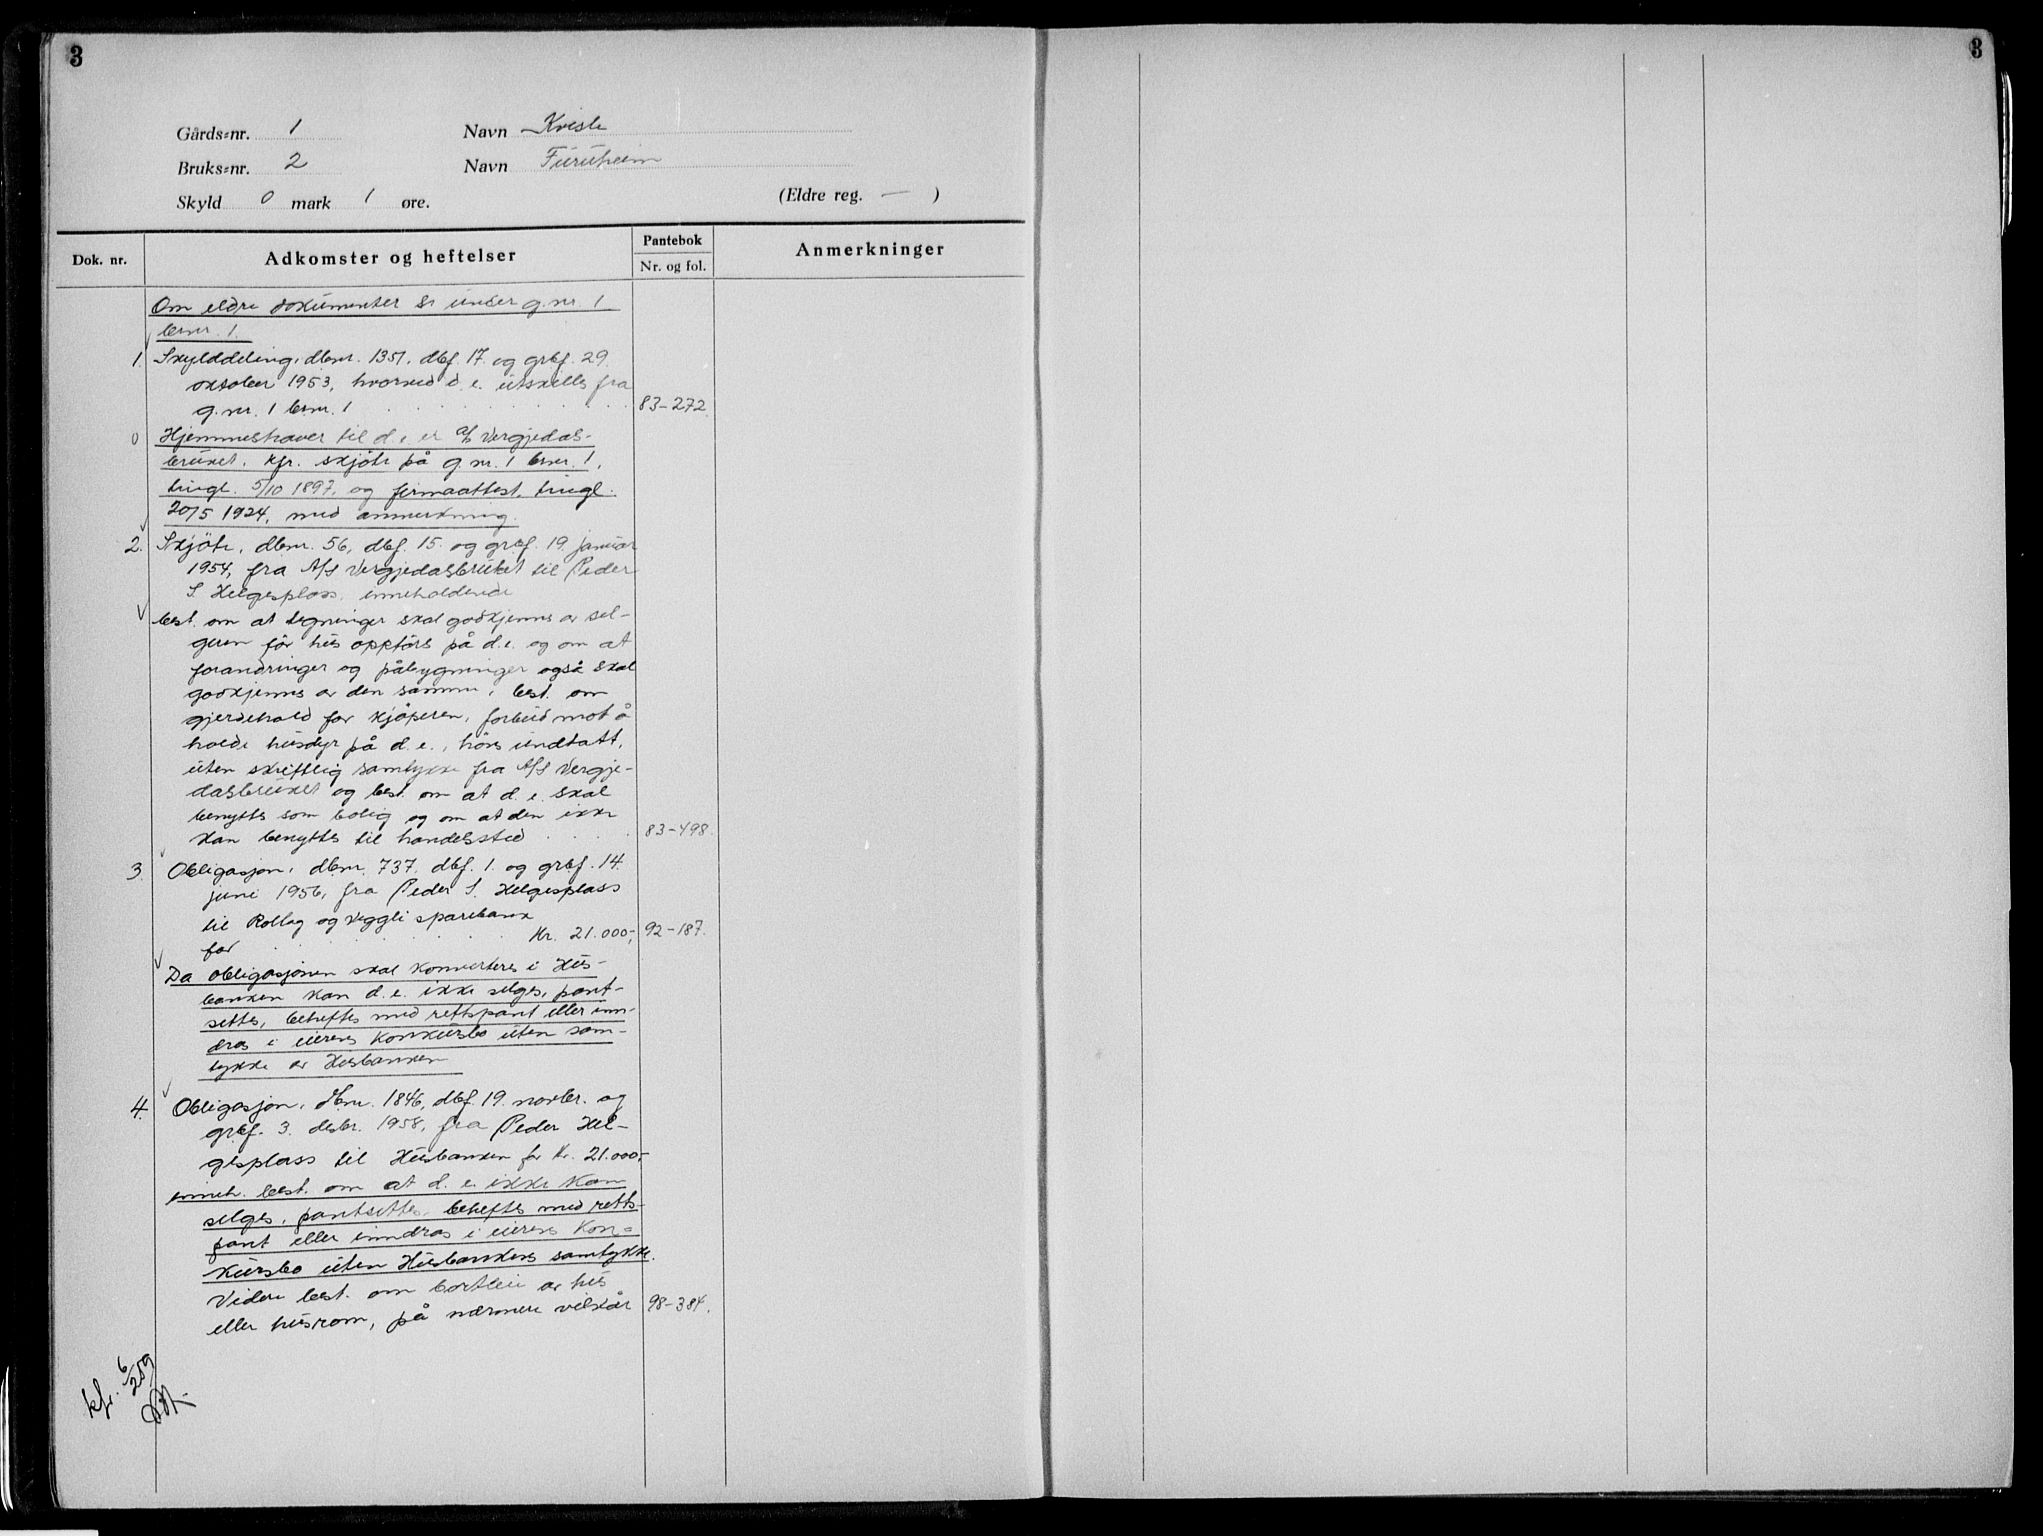 3
3
Gårds-nr. 1 Navn Kvisle
Bruks-nr. 2 Navn Furuheim
Skyld 0 mark 1 øre. (Eldre reg. — )
Dok. nr. Adkomster og heftelser Pantebok Anmerkninger
Nr. og fol.
Om eldre dokumenter se under g.nr. 1
brnr. 1.
1. Skylddeling, dbnr. 1351, dbf. 17. og grbf. 29.
oktober 1953, hvorved d.e. utskilles fra
g.nr. 1 brnr. 1 83-272.
0 Hjemmelshaver til d.e. er A/S Vergjedas-
bruket. kfr. skjöte på g.nr. 1 brnr. 1,
tingl. 5/10 1897, og firmaattest, tingl.
20/5 1924, med anmerkning.
2. Skjöte, dbnr. 56, dbf. 15. og grbf. 19. januar
1954, fra A/S Vergjedasbruket til Peder
S. Helgesplass, inneholdende
best. om at tegninger skal godkjennes av sel-
geren för hus oppförs på d.e. og om at
forandringer og påbygninger også skal
godkjennes av den samme, best. om
gjerdehold for kjöperen, forbud mot å
holde husdyr på d.e., höns undtatt,
uten skriftlig samtykke fra A/S Vergje-
dasbruket og best. om at d.e. skal
benyttes som bolig og om at den ikke
kan benyttes til handelssted 83-498.
3. Obligasjon, dbnr. 737, dbf. 1. og grbf. 14.
juni 1956, fra Peder S. Helgesplass
til Rollag og Veggli sparebank
for Kr. 21.000,- 92-187.
Da obligasjonen skal konverteres i Hus-
banken kan d.e. ikke selges, pant-
settes, beheftes med rettspant eller inn-
dras i eierens konkursbo uten sam-
tykke av Husbanken
4. Obligasjon, dbnr. 1846, dbf. 19. novbr. og
grbf. 3. desbr. 1958, fra Peder Hel-
gesplass til Husbanken for kr. 21.000,-
inneh. best. om at d.e. ikke kan
selges, pantsettes, beheftes med retts-
pant eller inndras i eierens kon-
kursbo uten Husbankens samtykke.
Videre best. om bortleie av hus
eller husrom, på nærmere vilkår 98-384.
kfr. 6/259